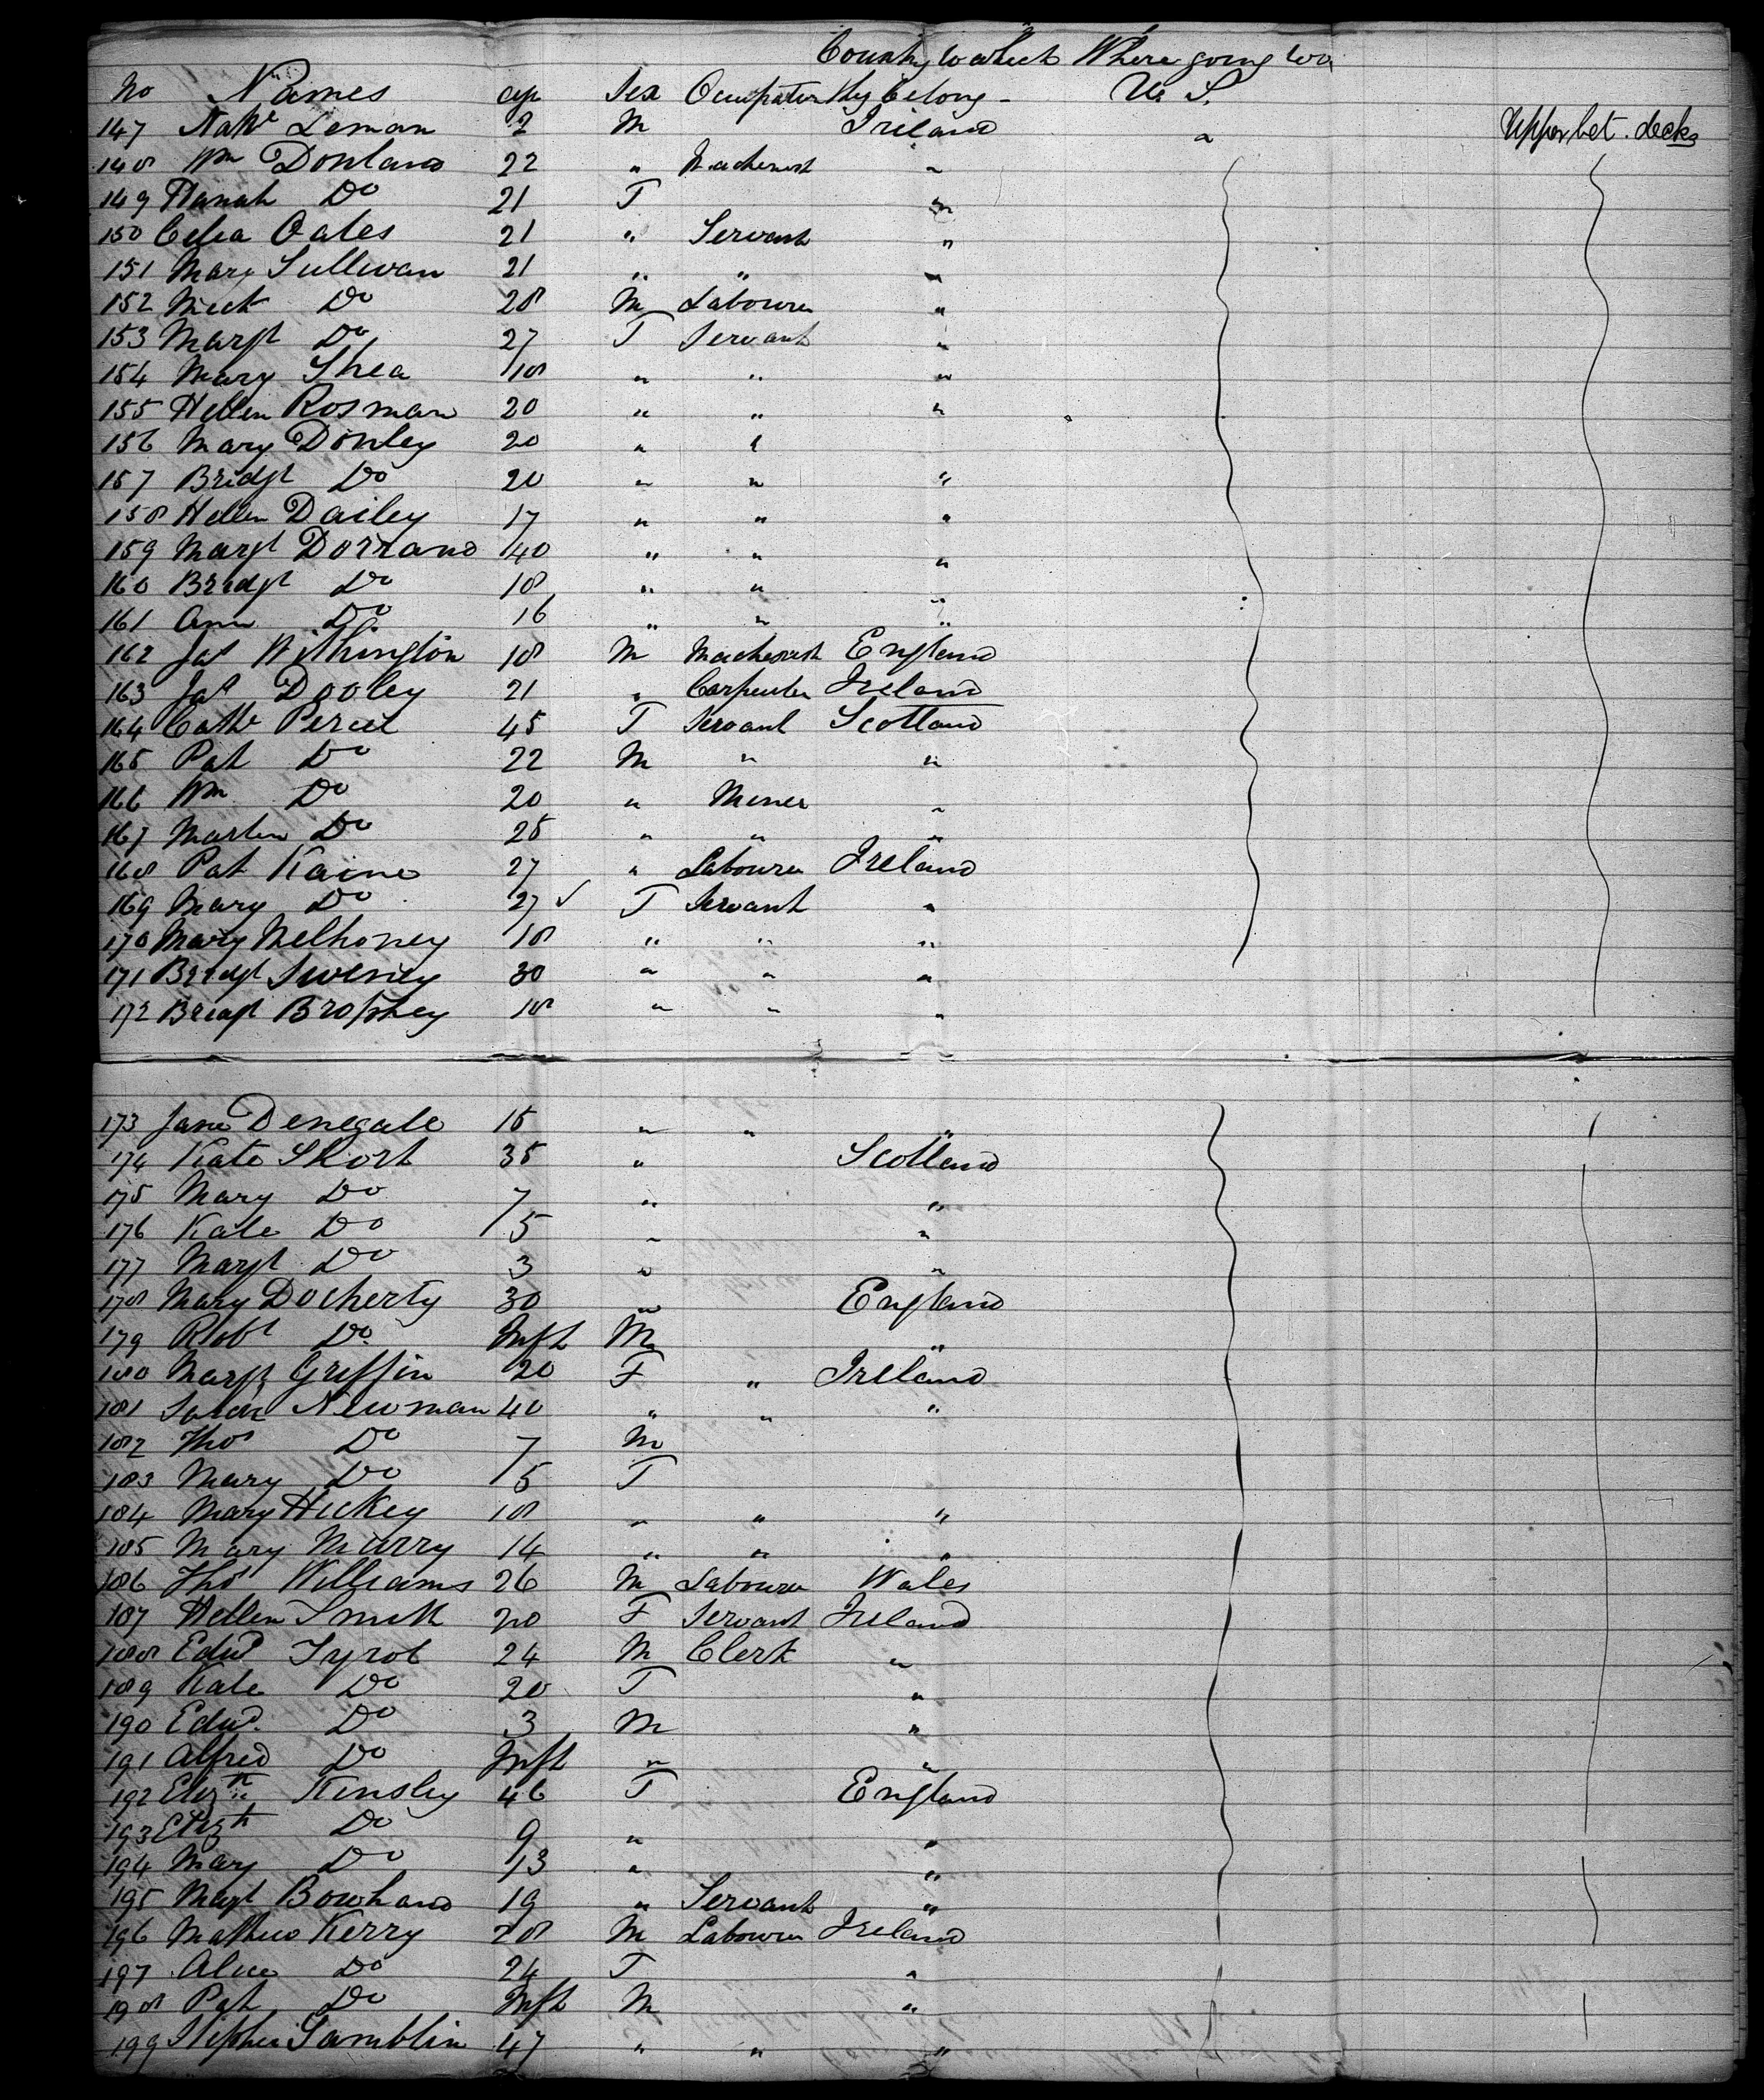 Country to which Where going too
No Names age Sex Occupation they belong - U. S.
147 Leman 2 M Ireland " Upper bet. decks
148 Wm Donland 22 " Machenist "
149 Hanah Do 21 F "
150 Celia Oates 21 " Servant "
151 Mary Sullivan 21 " " "
152 Mick Do 28 M Labourer "
153 Margt Do 27 F Servant "
154 Mary Shea 18 " " "
155 Hellen Rosman 20 " " "
156 Mary Donley 20 " "
157 Bridgt Do 20 " " "
158 Hellen Dailey 17 " " "
159 Margt Dorrand 40 " " "
160 Bridgt Do 18 " " "
161 Ann Do 16 " " "
162 Jas Withington 18 M Machenist England
163 Jas Dooley 21 " Carpenter Ireland
164 Cathe 45 F Servant Scotland
165 Pat Do 22 M " "
166 Wm Do 20 " Miner "
167 Martin Do 25 " " "
168 Pat Kaine 27 " Labourer Ireland
169 Mary Do 27 ✓ F Servant "
170 Mary Melhoney 18 " " "
171 Bridgt Sweney 30 " " "
172 Bridgt Brophey 18 " " "
173 Jane Denegale 15 " " "
174 Kate Short 35 " Scotland
175 Mary Do 7 " "
176 Kate Do 5 " "
177 Margt Do 3 " "
178 Mary Docherty 30 " England
179 Robt Do Inft M "
180 Margt Griffin 20 F " Ireland
181 Newman 40 " " "
182 Thos Do 7 M
183 Mary Do 5 F
184 Mary Hickey 18 " " "
185 Mary Murry 14 " " "
186 Thos Williams 26 M Labourer Wales
187 Hellen Smith 20 F Servant Ireland
188 Edwd 24 M Clerk "
189 Kate Do 20 F "
190 Edwd Do 3 M "
191 Alfred Do Inft " "
192 Elizth Kensley 46 F England
193 Elizth Do 9 " "
194 Mary Do 13 " "
195 Margt Bowhand 19 " Servant "
196 Mathew Kerry 28 M Labourer Ireland
197 Alice Do 24 F "
198 Pat Do Inft M "
199 Stephen Tamblin 47 " " "